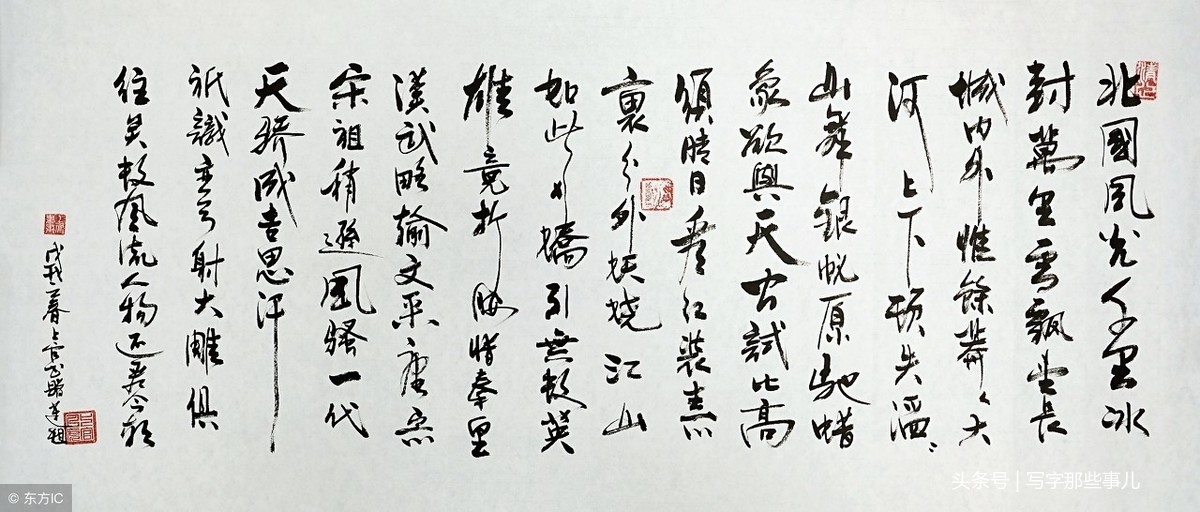 北國風光千里冰
封萬里雪飄望長
城内外惟餘莽々大
河上下頓失滔々
山舞銀蛇原馳蜡
象欲與天公試比高
須晴日看紅裝素
裹分外妖嬈江山
如此多嬌引無數英
雄竟折腰惜秦皇
漢武略輸文采唐宗
宋祖稍遜風騷一代
天驕成吉思汗
祇識彎弓射大雕俱
往矣數風流人物還看今朝
戊戌暮春上官
© 东方IC
头条号 | 写字那些事儿